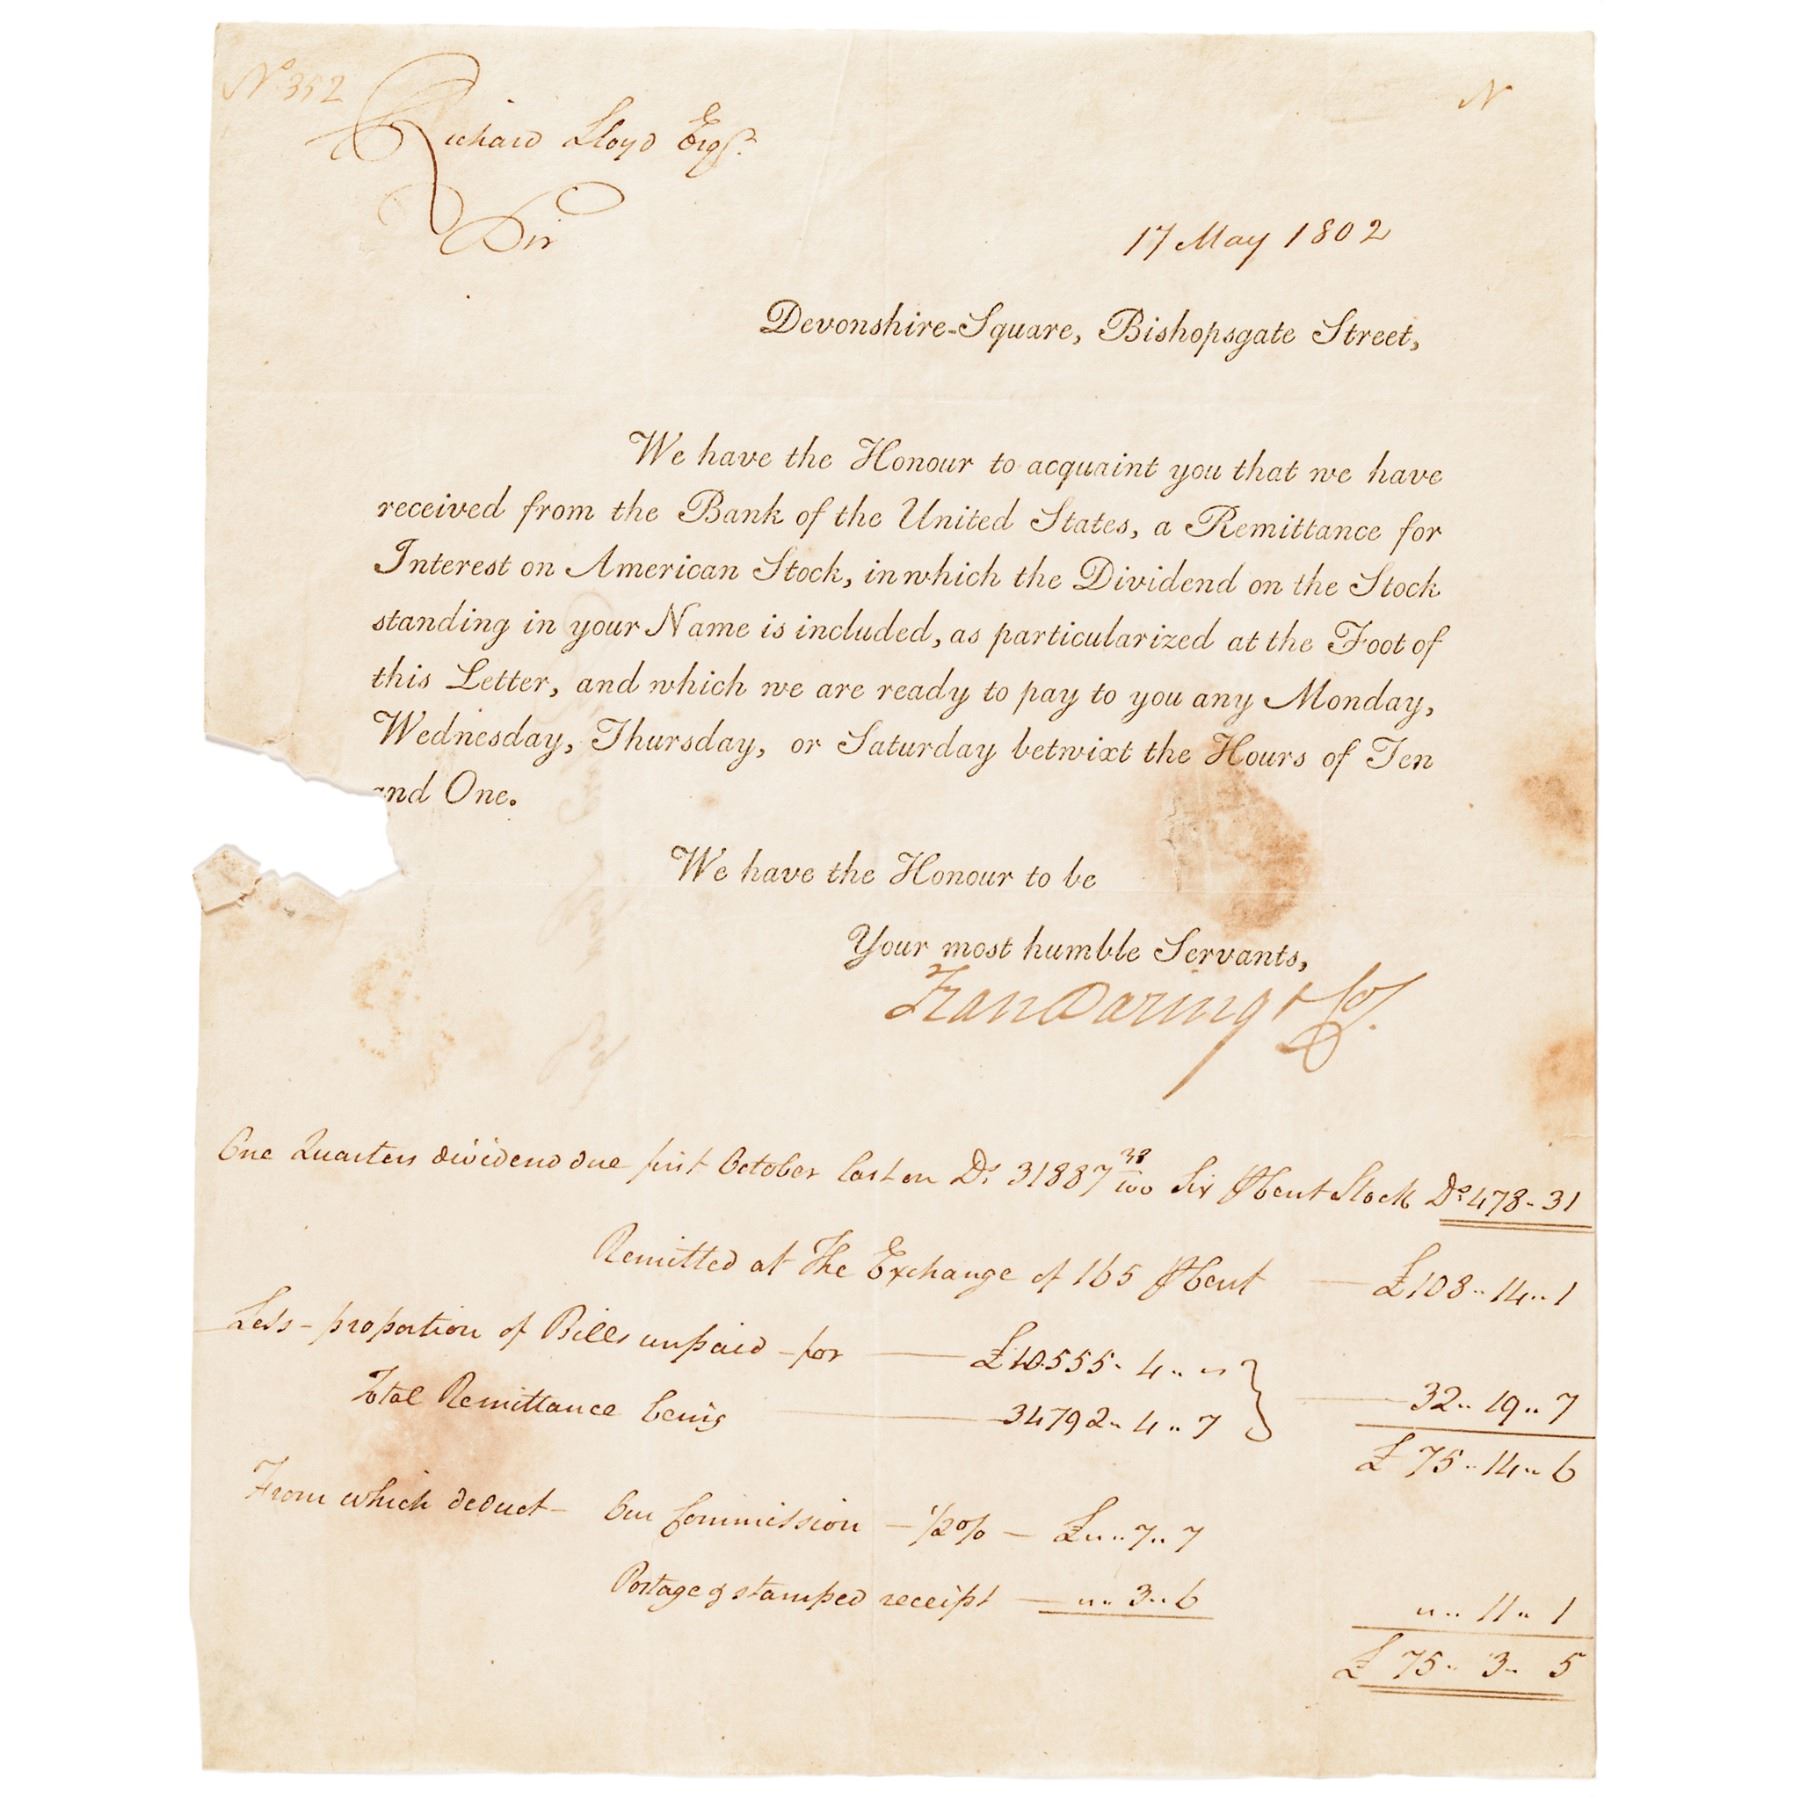 No. 352
N
Richard Lloyd Esqr.
Sir
17 May 1802
Devonshire-Square, Bishopsgate Street,
We have the Honour to acquaint you that we have
received from the Bank of the United States, a Remittance for
Interest on American Stock, in which the Dividend on the Stock
standing in your Name is included, as particularized at the Foot of
this Letter, and which we are ready to pay to you any Monday,
Wednesday, Thursday, or Saturday betwixt the Hours of Ten
and One.
We have the Honour to be
Your most humble Servants,
Fran Baring & Co.
One Quarters dividend due first October last on Ds. 31887 38/100 Six ⅌ Cent Stock Ds. 478-31
Remitted at the Exchange of 165 ⅌ Cent — £108..14..1
Less - proportion of Bills unpaid - for — £10.555.. 4.. "
Total Remittance being — 34792.. 4.. 7 } — 32.. 19.. 7
£ 75.. 14.. 6
From which deduct - Our Commission - 1/2 % - £ ".. 7.. 7
Postage & stamped receipt — ".. 3.. 6
".. 11.. 1
£ 75.. 3.. 5